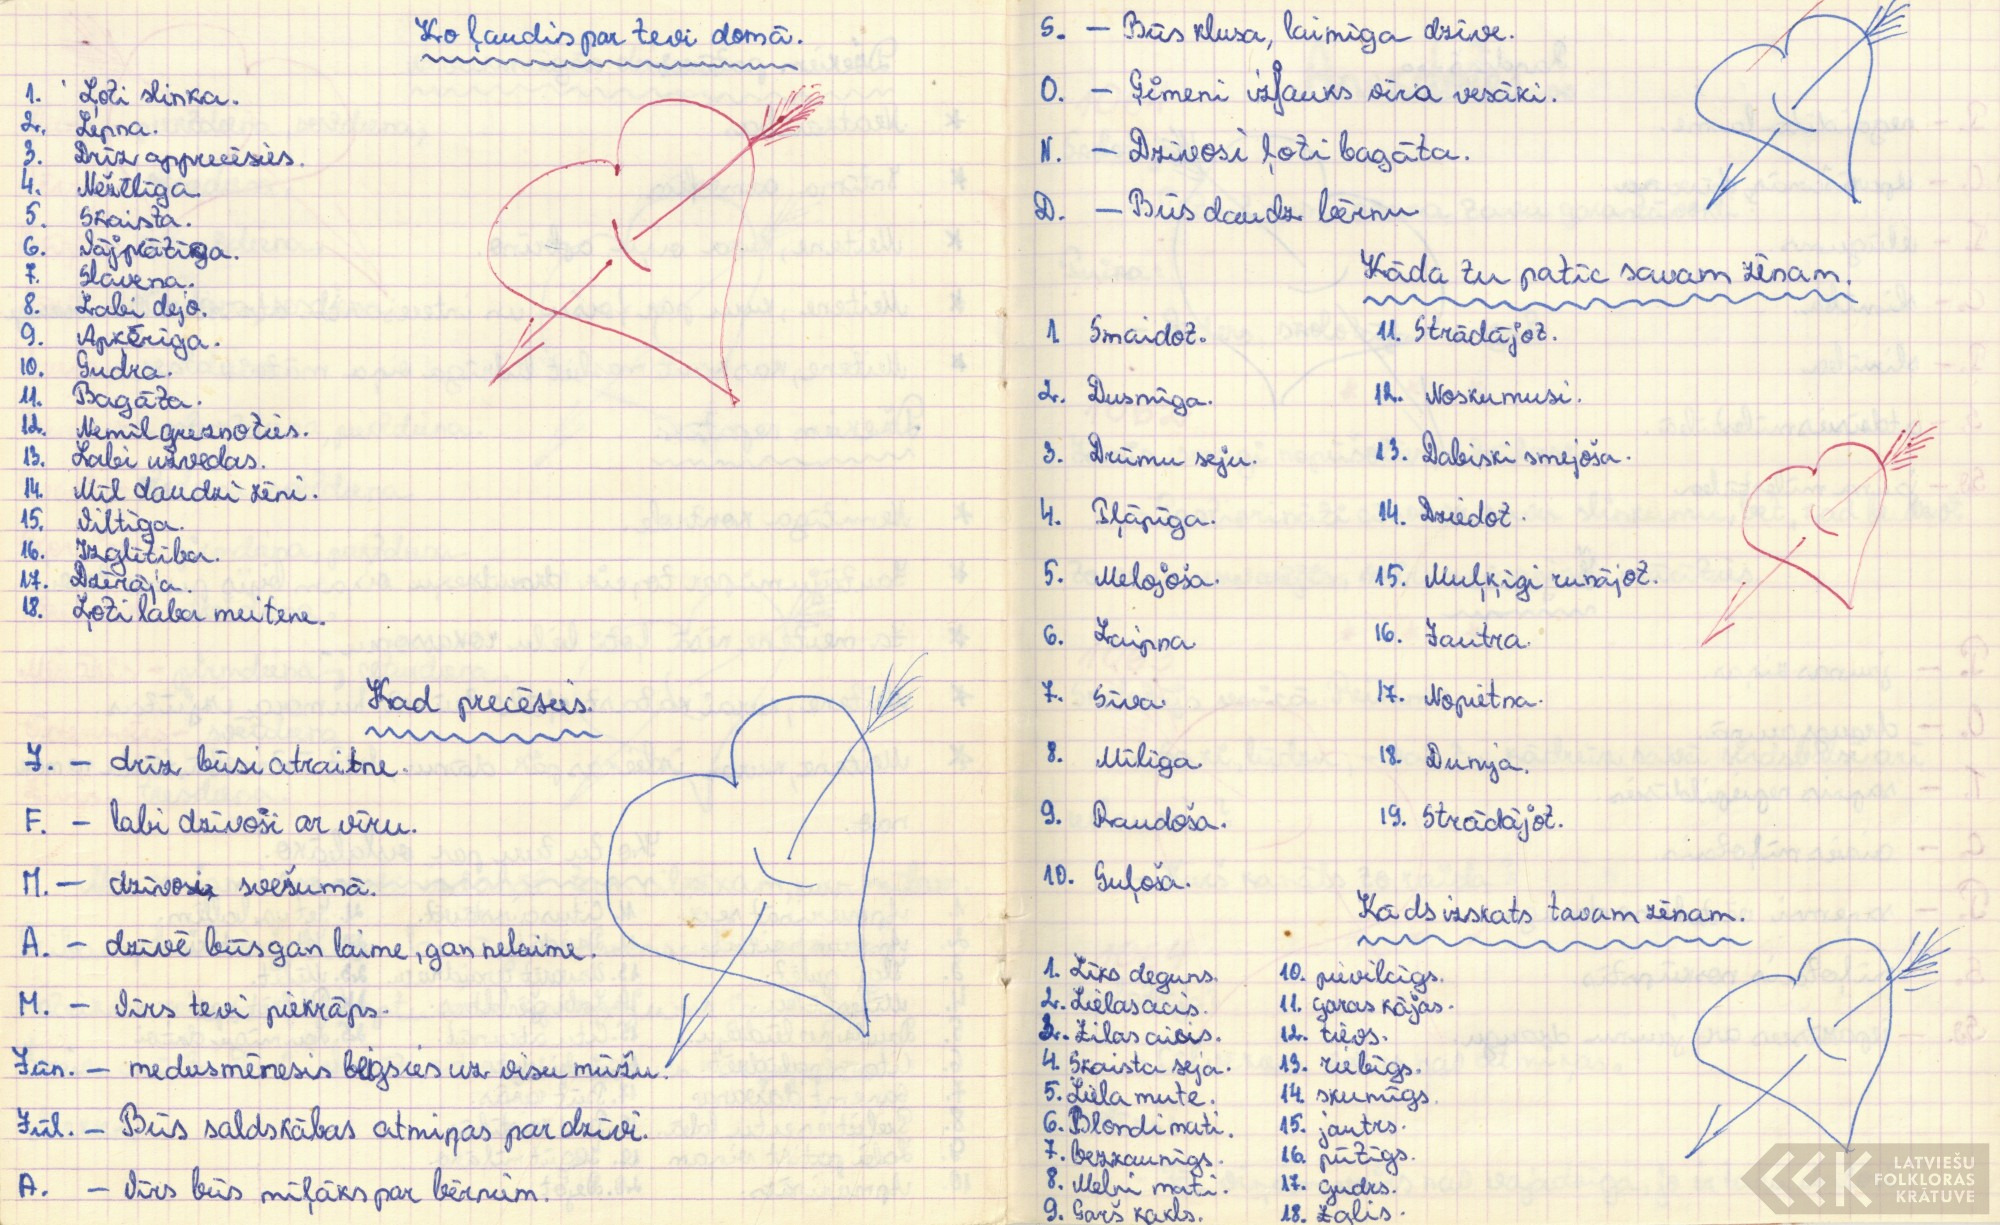 Ko ļaudis par tevi domā.
1. Ļoti slinka.
2. Lepna.
3. Drīz apprecēsies.
4. Nežēlīga.
5. Skaista.
6. Vājprātīga.
7. Slavena.
8. Labi dejo.
9. Apķērīga.
10. Gudra.
11. Bagāta.
12. Nemīl greznoties.
13. Labi uzvedas.
14. Mīl daudzi zēni.
15. Viltīga.
16. Izglītība.
17. Dzērāja.
18. Ļoti laba meitene.
Kad precēsies.
J. – drīz būsi atraitne.
F. – labi dzīvosi ar vīru.
M. – dzīvosi svešumā.
A. – dzīvē būs gan laime, gan nelaime.
M. – Vīrs tevi piekrāps.
Jūn. – medusmēnesis beigsies uz visu mūžu.
Jūl. – Būs saldskābas atmiņas par dzīvi.
A. – Vīrs būs mīļāks par bērniem.
S. – Būs klusa, laimīga dzīve.
O. – Ģimeni izjauks vīra vecāki.
N. – Dzīvosi ļoti bagāta.
D. – Būs daudz bērnu
Kāda tu patīc savam zēnam.
1. Smaidot.
2. Dusmīga.
3. Drūmu seju.
4. Pļāpīga.
5. Melojoša.
6. Laipna
7. Sīva.
8. Mīlīga.
9. Raudoša.
10. Guļoša.
11. Strādājot.
12. Noskumusi.
13. Dabiski smejoša.
14. Dziedot.
15. Muļķīgi runājot.
16. Jautra.
17. Nopietna.
18. Dumja.
19. Strādājot.
Kāds izskats tavam zēnam.
1. Līks deguns.
2. Lielas acis.
3. Zilas acis.
4. Skaista seja.
5. Liela mute.
6. Blondi mati.
7. bezkaunīgs.
8. Melni mati.
9. Garš kakls.
10. pievilcīgs.
11. garas kājas.
12. tievs.
13. riebīgs.
14. skumīgs.
15. jautrs.
16. pūtīgs.
17. gudrs.
18. žalis.
LATVIEŠU
FOLKLORAS
KRĀTUVE